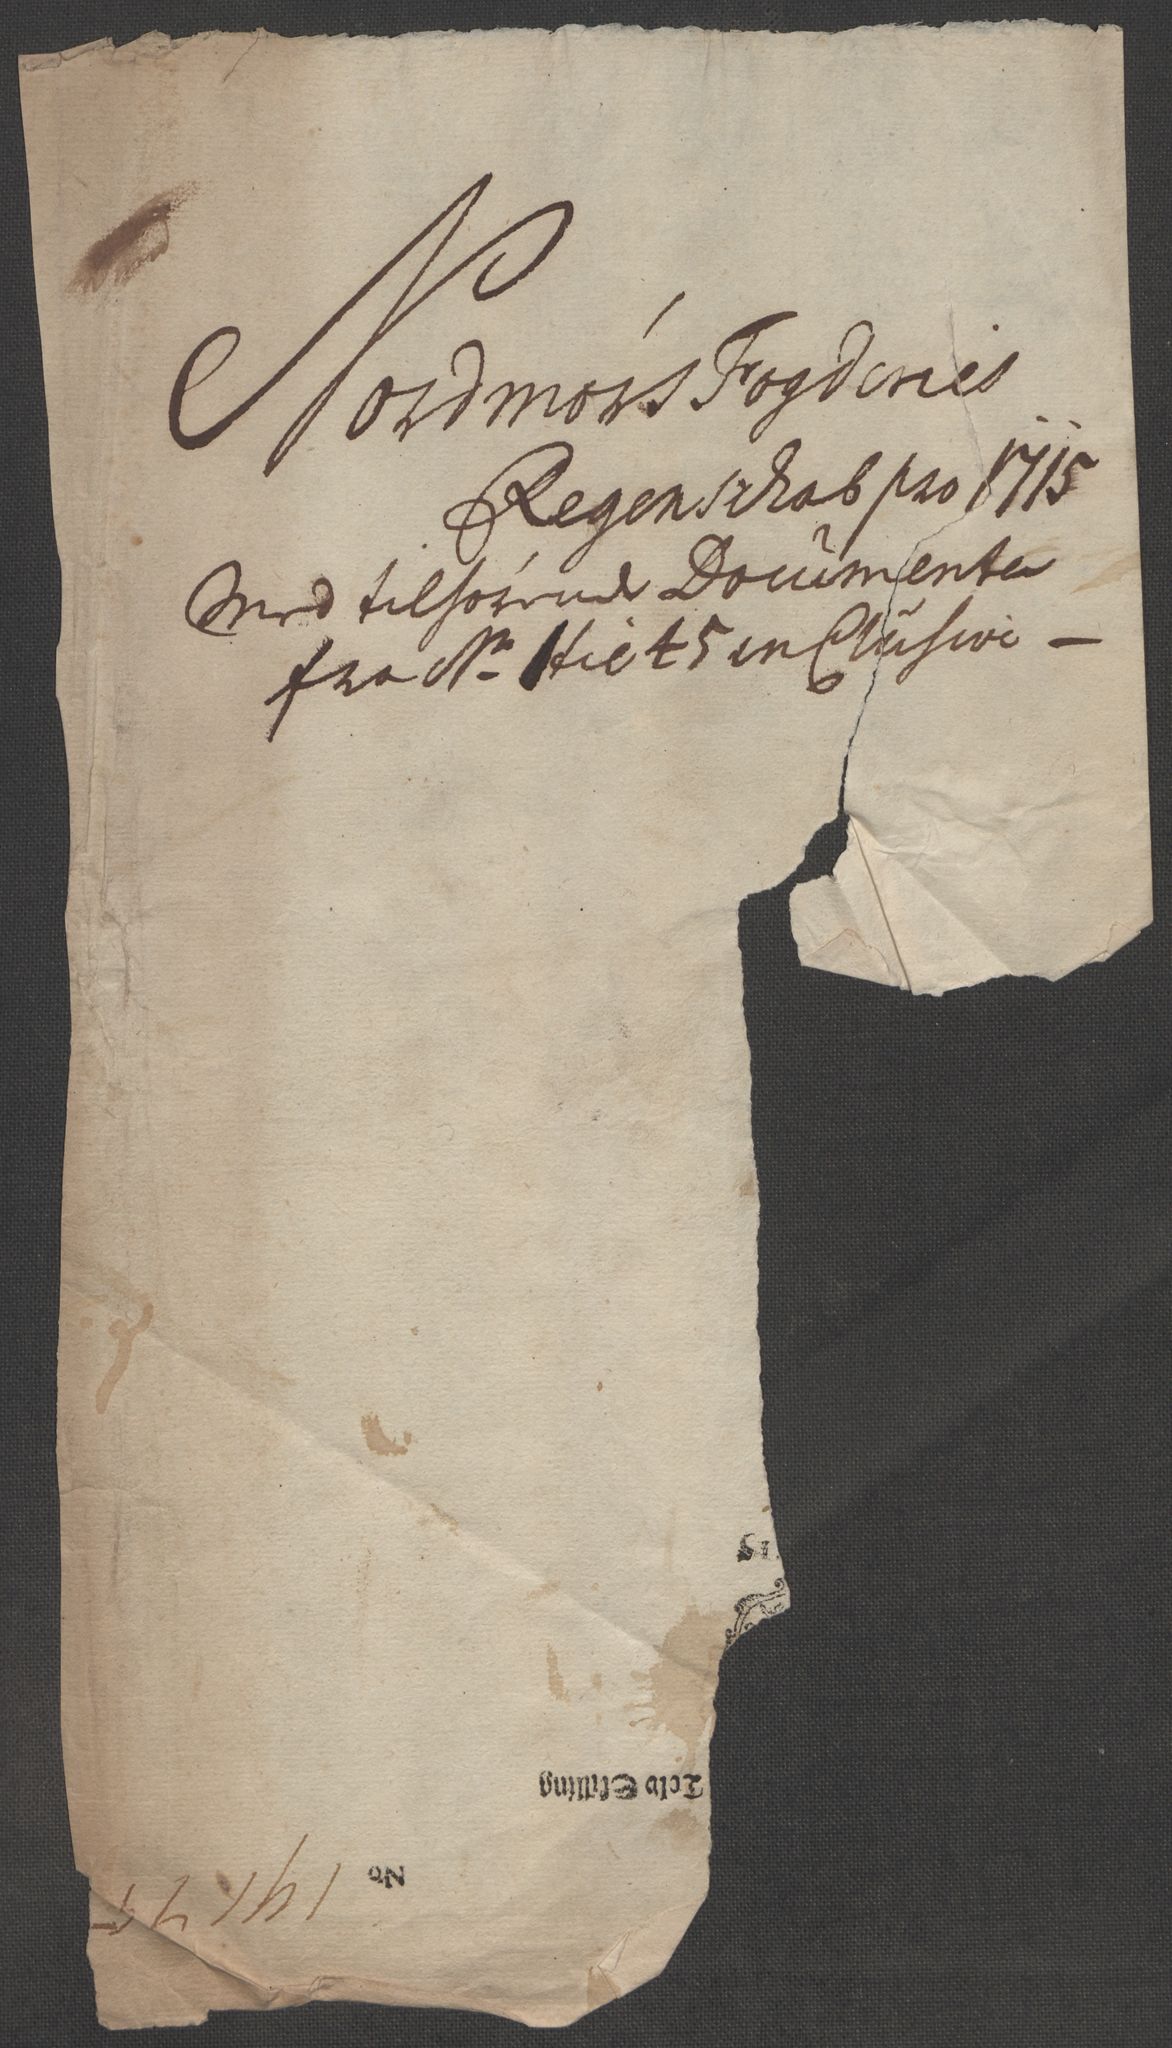 Nordmørs Fogderies
Regenschab pro 1715
Med tilhørende Documenter
fra No. 1 til 45 inclusive —
Tolv Skilling
No